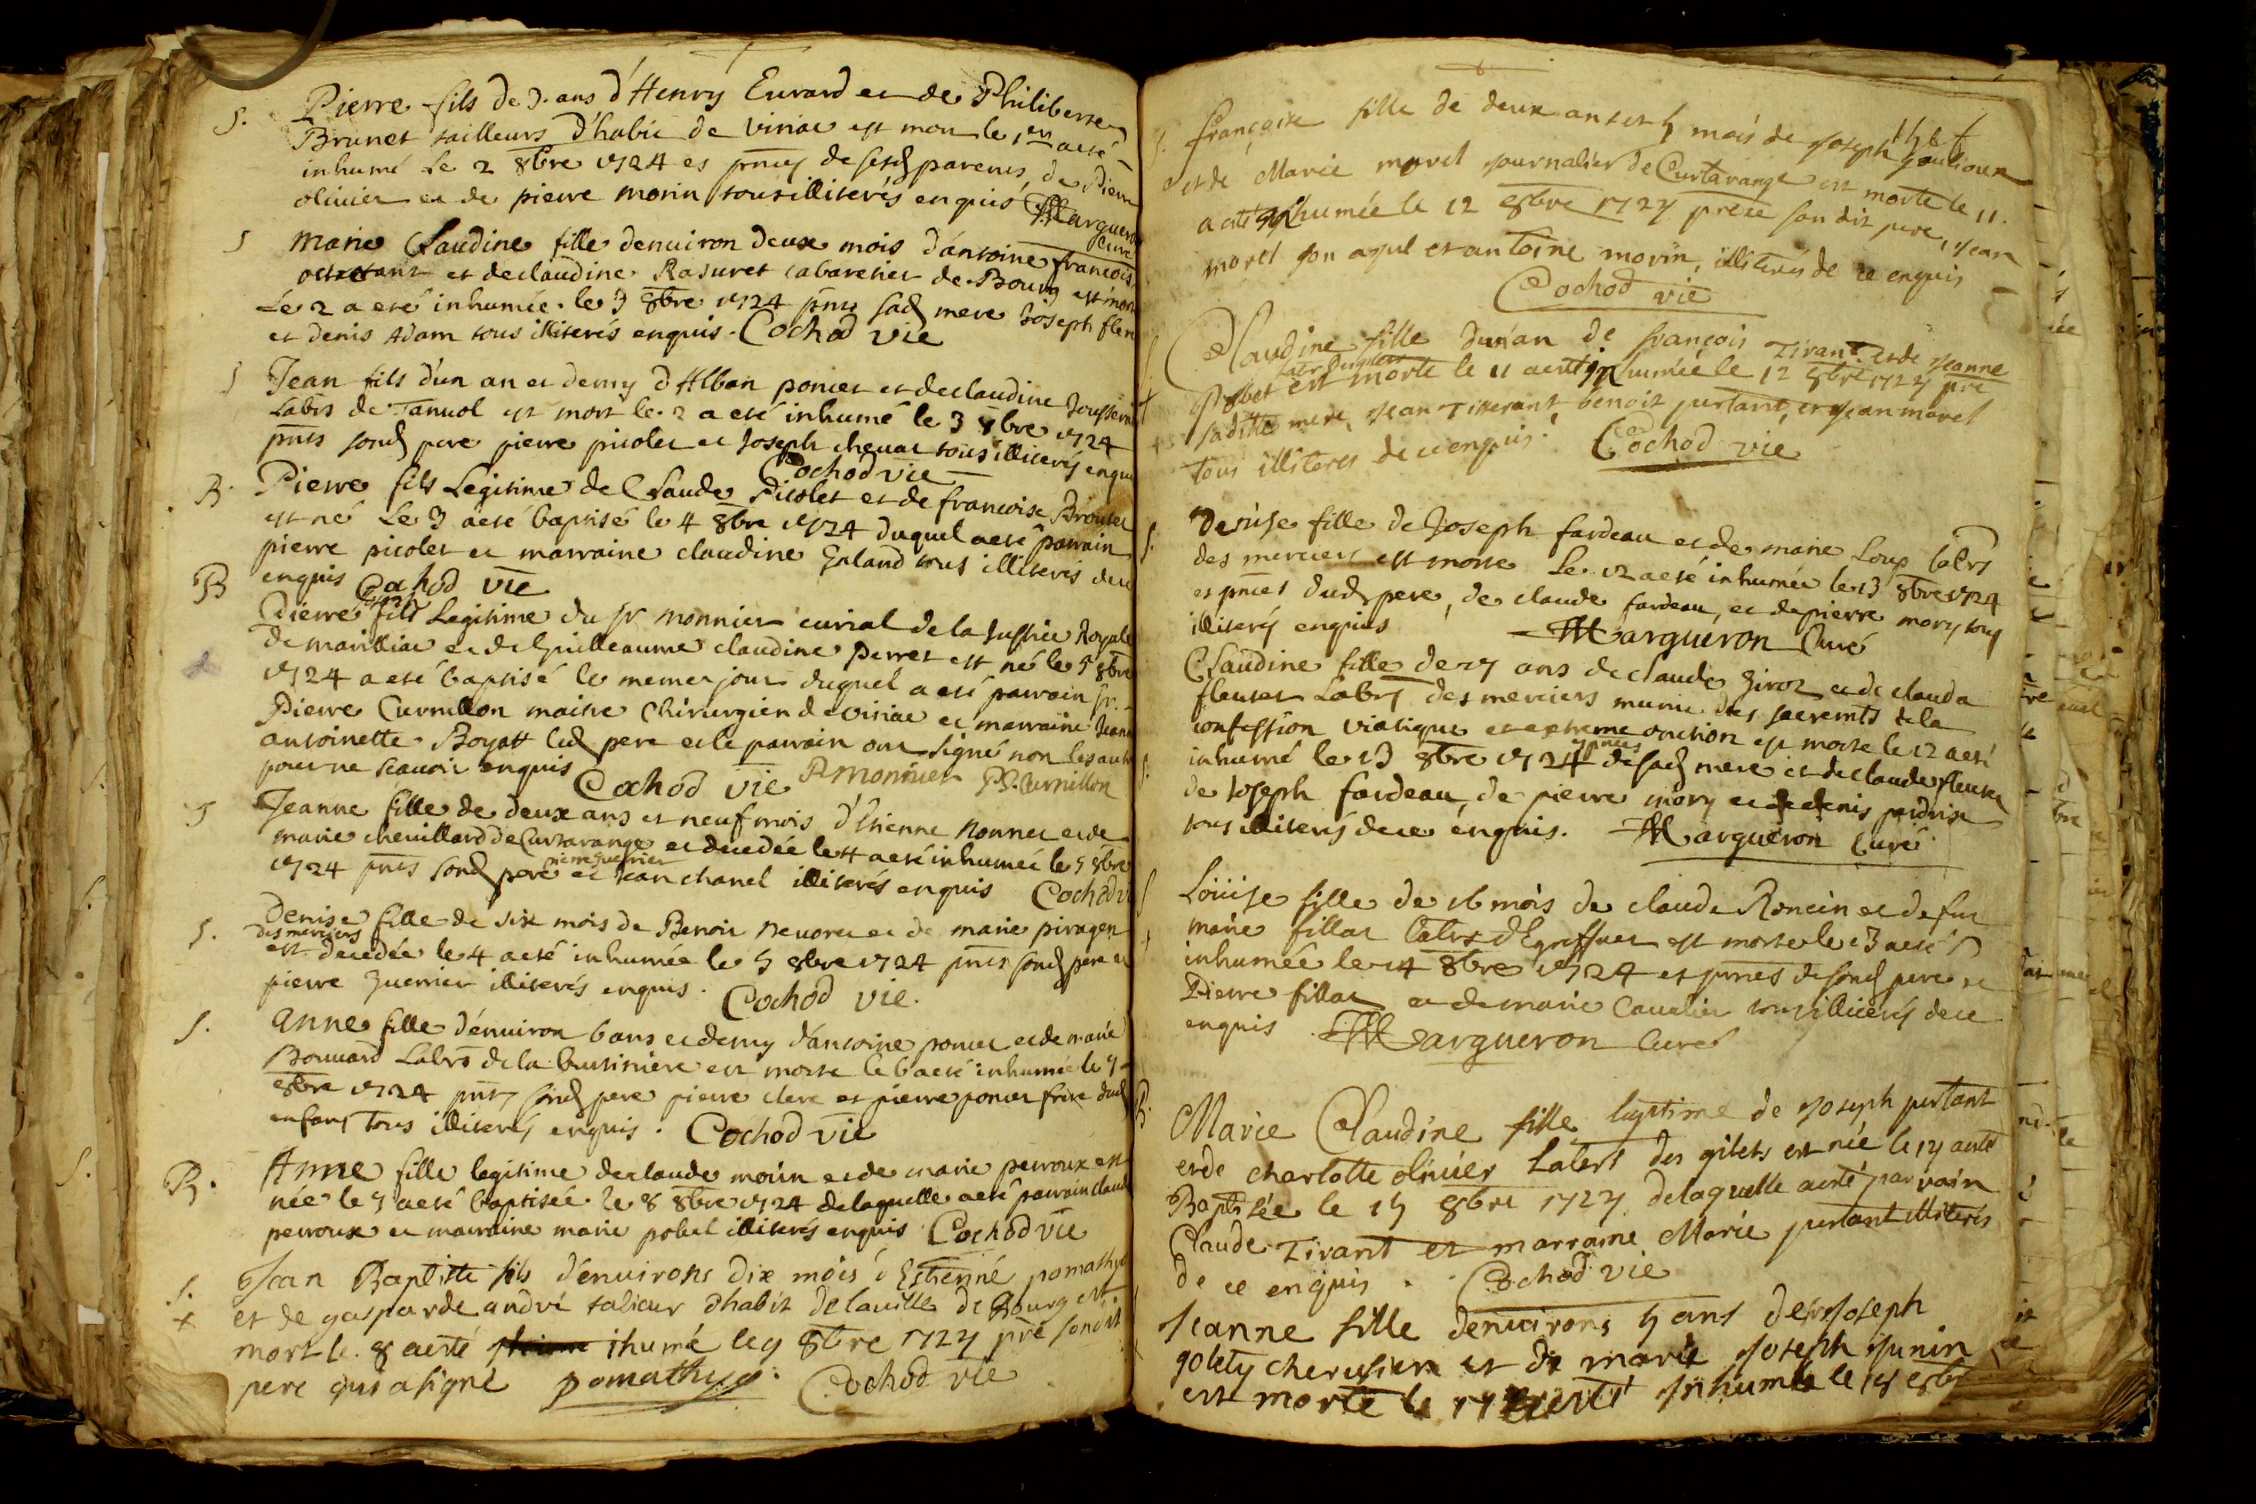 S. Pierre fils de 3. ans d'Henry Evrard et de Philiberte
Brunet tailleurs d'habit de Viriat est mort le 1er a eté
inhumé Le 2 8bre 1724 es pnces de sesd parents, de Pierre
olivier et de pierre morin tous illiterés enquis Margueron
Curé
S marie Claudine fille denviron deux mois d'antoine francois
et de claudine Rasuret cabaretier de Bourg est morte
Le 2 a eté inhumée le 3 8bre 1724 pnts sad mere Joseph
et denis Adam tous illiterés enquis. Cochod vic
S Jean fils d'un an et demy d'Alban poncet et de claudine
Labrs de Tanvol est mort le 2 a eté inhumé le 3 8bre 1724
pnts sond pere pierre picolet et Joseph chevat tous illiterés enquis
Cochod vic
B. Pierre fils Legitime de Claude Picolet et de francoise Brouset
est né Le 3 a eté baptisé le 4 8bre 1724 duquel a eté parrain
pierre picolet et marraine claudine Galand tous illiterés de ce
enquis Cochod vic
B Pierre fils Legitime du sr monnier curial de la Justice Royale
de marilliac et de Guilleaume claudine perret est né le 5 8bre
1724 a eté baptisé le meme jour duquel a eté parrain sr.
Pierre Curnillon maitre Chirurgien de viriat et marraine Jeanne
antoinette Boyatt led pere et le parrain ont signé non les autres
pour ne scavoir enquis Cochod vic P monnier P. Curnillon
S Jeanne fille de deux ans et neuf mois d'Etienne Nonnet et de
marie chevillard de Curtarange et decedée le 4 a eté inhumée le 5 8bre
pierre guerrier
1724 pnts sond pere et jean chanel illiterés enquis Cochod vic
S. Denise fille de six mois de Benoit nevoret et de marie piraget
des merciers
est decedée le 4 a eté inhumée le 5 8bre 1724 pnts sond pere et
pierre guerrier illiterés enquis. Cochod vic.
S. Anne fille d'environ 6 ans et demy d'antoine poncet et de marie
Bouvard Labrs de la businiere est morte le 6 a eté inhumée le 7
8bre 1724 pnts sond pere pierre clerc et pierre poncet frere dud
enfant tous illiterés enquis. Cochod vic
B. Anne fille legitime de claude moiin et de marie perroux est
née le 7 a eté baptisée le 8 8bre 1724 de laquelle a eté parrain claude
perroux et marraine marie pobel illiterés enquis Cochod vic
S. Jean Baptiste fils d'environs dix mois d'Estienne pomathyo
+ et de gasparde andré talieur d'habit de la ville de Bourg est
mort le 8 a eté ihumé le 9 8bre 1724 pre son dit
pere qui a signé pomathyo. Cochod vic
S. françoise fille de deux ans et 4 mois de Joseph
et de Marie morel journalier de Curtarange est morte le 11.
a eté inhumée le 12 8bre 1724 prese son dit pere, Jean
morel son ayul et antoine morin, illiterés de ce enquis
Cochod vic
Claudine fille d'un an de françois Tirant et de Jeanne
Pobet est morte le 11 a eté inhumée le 12 8bre 1724 pre
sa ditte mere, Jean Tisserant, benoit purtant, et Jean morel
tous illiteres de ce enquis. Cochod vic
S. Denise fille de Joseph fardeau et de marie Loup labrs
des merciers est morte Le 12 a eté inhumée le 13 8bre 1724
es pnces dud pere, de claude fardeau, et de pierre mory tous
illiterés enquis Margueron Curé
Claudine fille de 27 ans de claude Giroz et de clauda
fleuret Labrs des merciers munie des sacremts de la
confession viatique et extreme onction est morte le 12 a eté
es pnces
S. inhumé le 13 8bre 1724 de sad mere et de claude fleuret
de Joseph fardeau, de pierre mory et de denis perdrix
tous illiterés de ce enquis. Margueron Curé
S Loüise fille de 16 mois de claude Roncin et de fut
+ marie fillat Labrs d'Egreffuet est morte le 13 a eté
inhumée le 14 8bre 1724 es pnces de sond pere et
Pierre fillat et de marie Cavelier tous illiterés de ce
enquis. Margueron Curé
B. Marie Claudine fille legitime de Joseph purtant
et de charlotte olivier Labrs des gilets est née le 14 a eté
Baptisée le 15 8bre 1724 de laquelle a eté parrain
Claude Tirant et marraine Marie purtant illiterés
de ce enquis. Cochod vic
Jeanne fille denvirons 5 ans de Joseph
golety cherusien et de marie Joseph Junin
est morte le a eté inhumée le 8bre